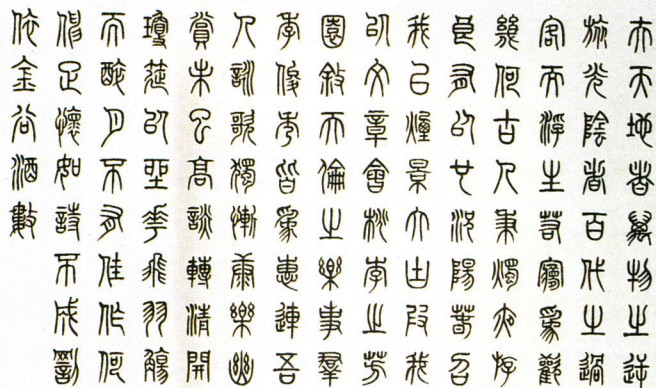 夫天地者萬物之逆
旅光陰者百代之過
客而浮生若夢爲歡
幾何古人秉燭夜遊
良有以也況陽春召
我以煙景大塊假我
以文章會桃李之芳
園敘天倫之樂事羣
季俊秀皆爲惠連吾
人詠歌獨慚康樂幽
賞未已高談轉清開
瓊筵以坐花飛羽觴
而醉月不有佳作何
伸雅懷如詩不成罰
依金谷酒數